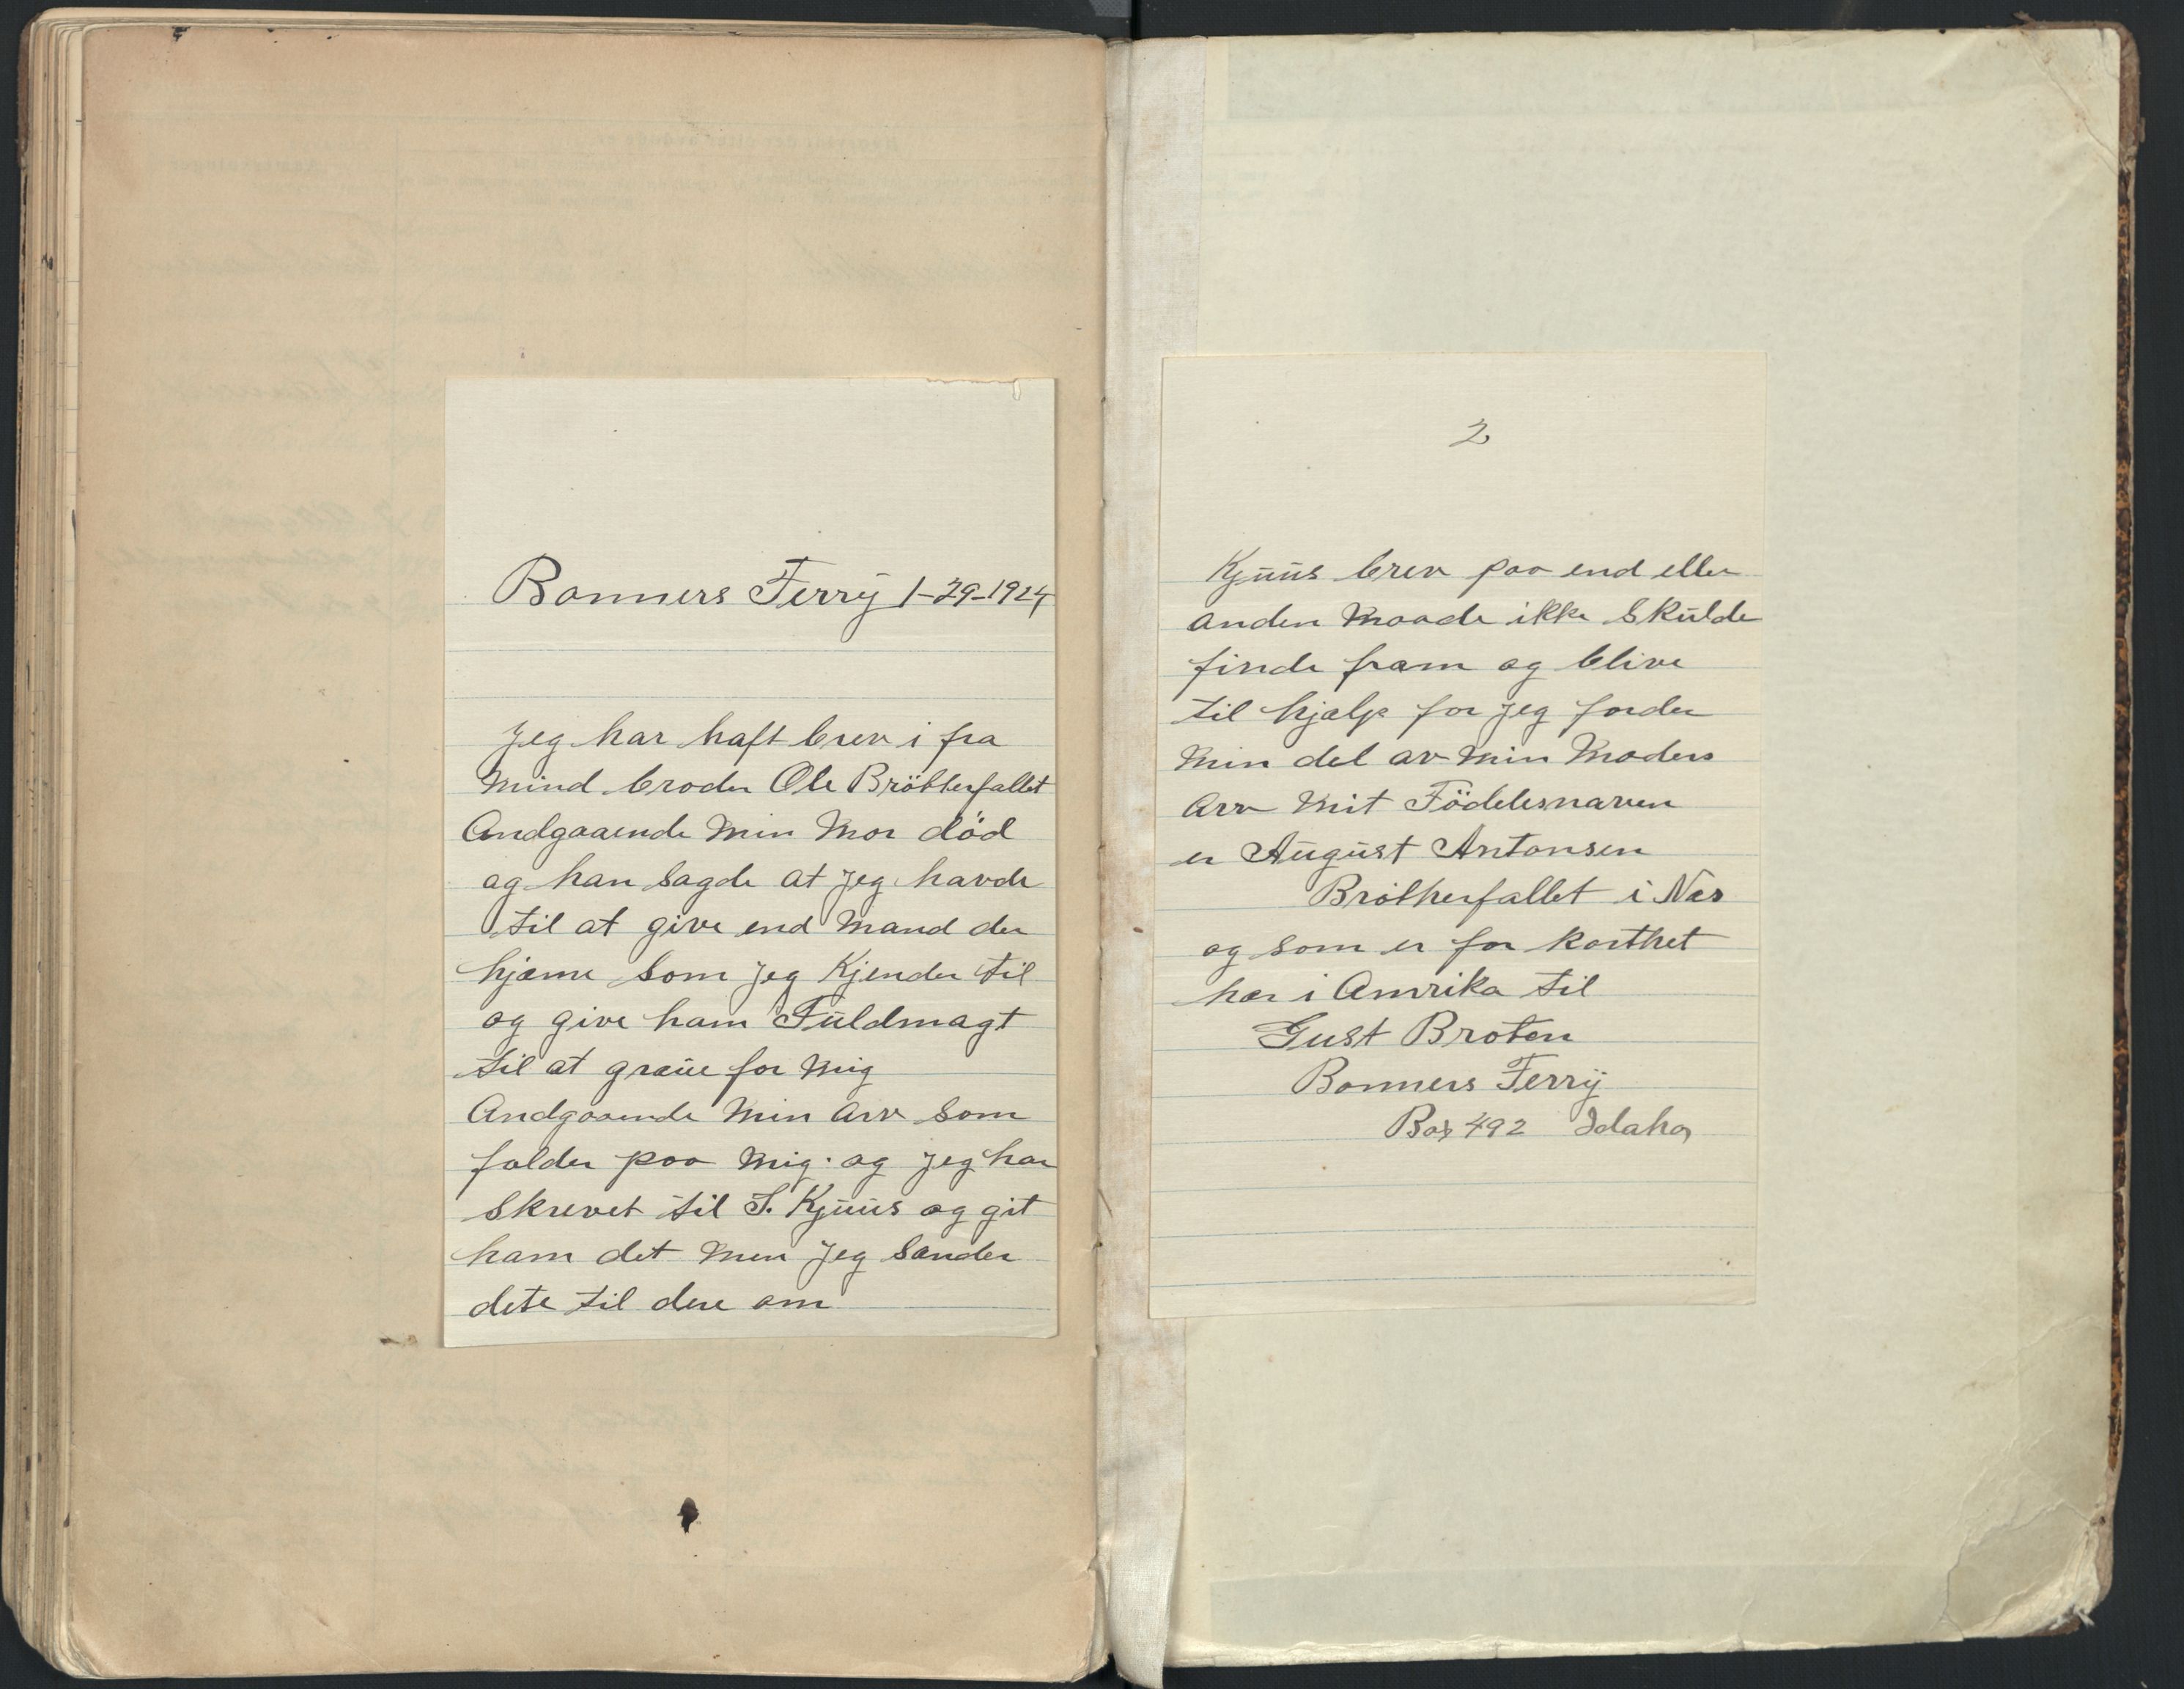 Bonners Ferry 1-29-1924
Jeg har haft brev i fra
Mind broder Ole Bröttenfallet
Andgaaende Min Mor död
og han Sagde at Jeg havde
til at give end Mand der
hjæme Som Jeg Kjender til
og give ham Fuldmagt
til at græie for Mig
Andgaaende Min Arv Som
falder paa Mig. og Jeg har
Skrevet til S. Kjuus og git
ham det Men Jeg Sænder
dete til dere om
2
Kjuus brev paa end eller
anden Maade ikke Skulde
finde fram og blive
til hjælp for Jeg forder
Min del av Min Moders
Arv Mit Födelesnaven
er August Antonsen
Brötherfallet i Næs
og som er for korthet
her i Amrika til
Gust Broten
Bonners Ferry
Box 492 Idaho